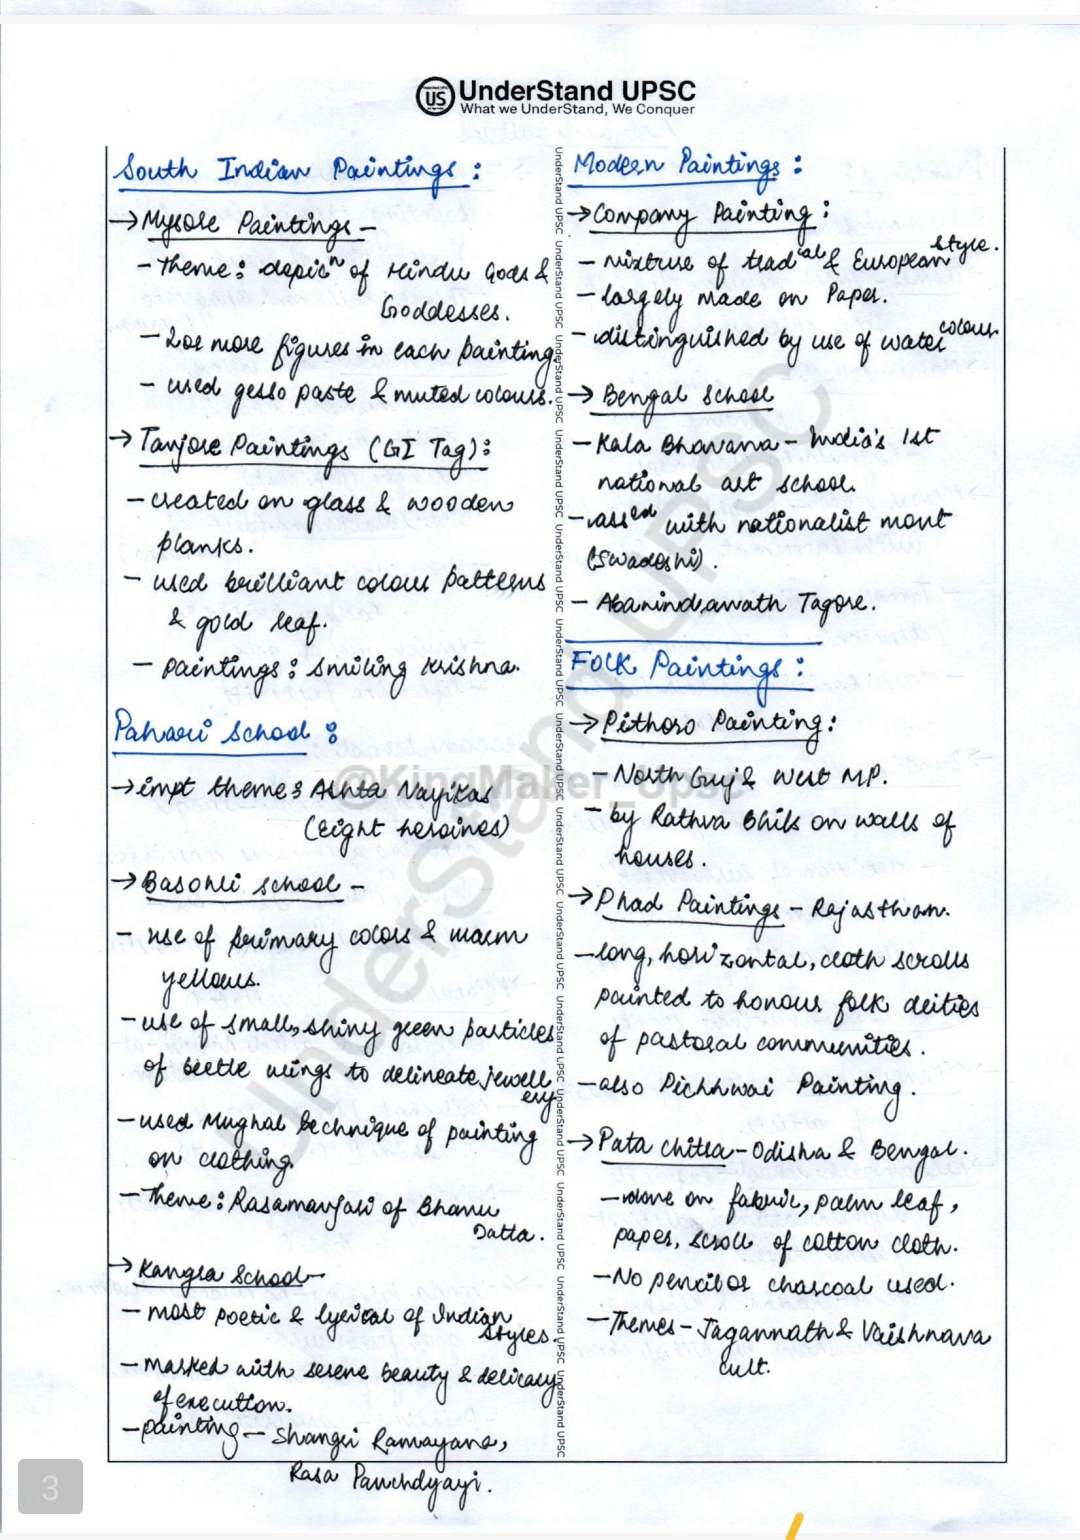 US UnderStand UPSC
What we UnderStand, We Conquer
South Indian Paintings :
→ Mysore Paintings –
- Theme : depicⁿ of Hindu Gods &
Goddesses.
- 2 or more figures in each painting
- used gesso paste & muted colours.
→ Tanjore Paintings (GI Tag) :
- created on glass & wooden
planks.
- used brilliant colour patterns
& gold leaf.
- paintings : Smiling Krishna.
Pahari School :
→ impt theme : Ashta Nayikas
(Eight heroines)
→ Basohli School –
- use of primary colors & warm
yellows.
- use of small, shiny green particles
of beetle wings to delineate jewell
ery
- used Mughal technique of painting
on clothing.
- Theme : Rasamanjari of Bhanu
Datta.
→ Kangra School –
- most poetic & lyrical of Indian
Styles.
- marked with serene beauty & delicacy
of execution.
- painting – Shangri Ramayana,
Rasa Panchdyayi.
Modern Paintings :
→ Company Painting :
- mixture of tradᶦᵃˡ & European style.
- largely made on Paper.
- distinguished by use of water colour
→ Bengal School
- Kala Bhavana – India's 1st
national art school.
- assᵉᵈ with nationalist movt
(Swadeshi).
- Abanindranath Tagore.
Folk Paintings :
→ Pithoro Painting :
- North Guj & West M.P.
- by Rathva Bhils on walls of
houses.
→ Phad Paintings – Rajasthan.
- long, horizontal, cloth scrolls
painted to honour folk deities
of pastoral communities.
- also Pichhwai Painting.
→ Pata Chitra – Odisha & Bengal.
- done on fabric, palm leaf,
paper, scroll of cotton cloth.
- No pencil or charcoal used.
- Themes – Jagannath & Vaishnava
cult.
UnderStand UPSC
@KingMaker_Upsc
3